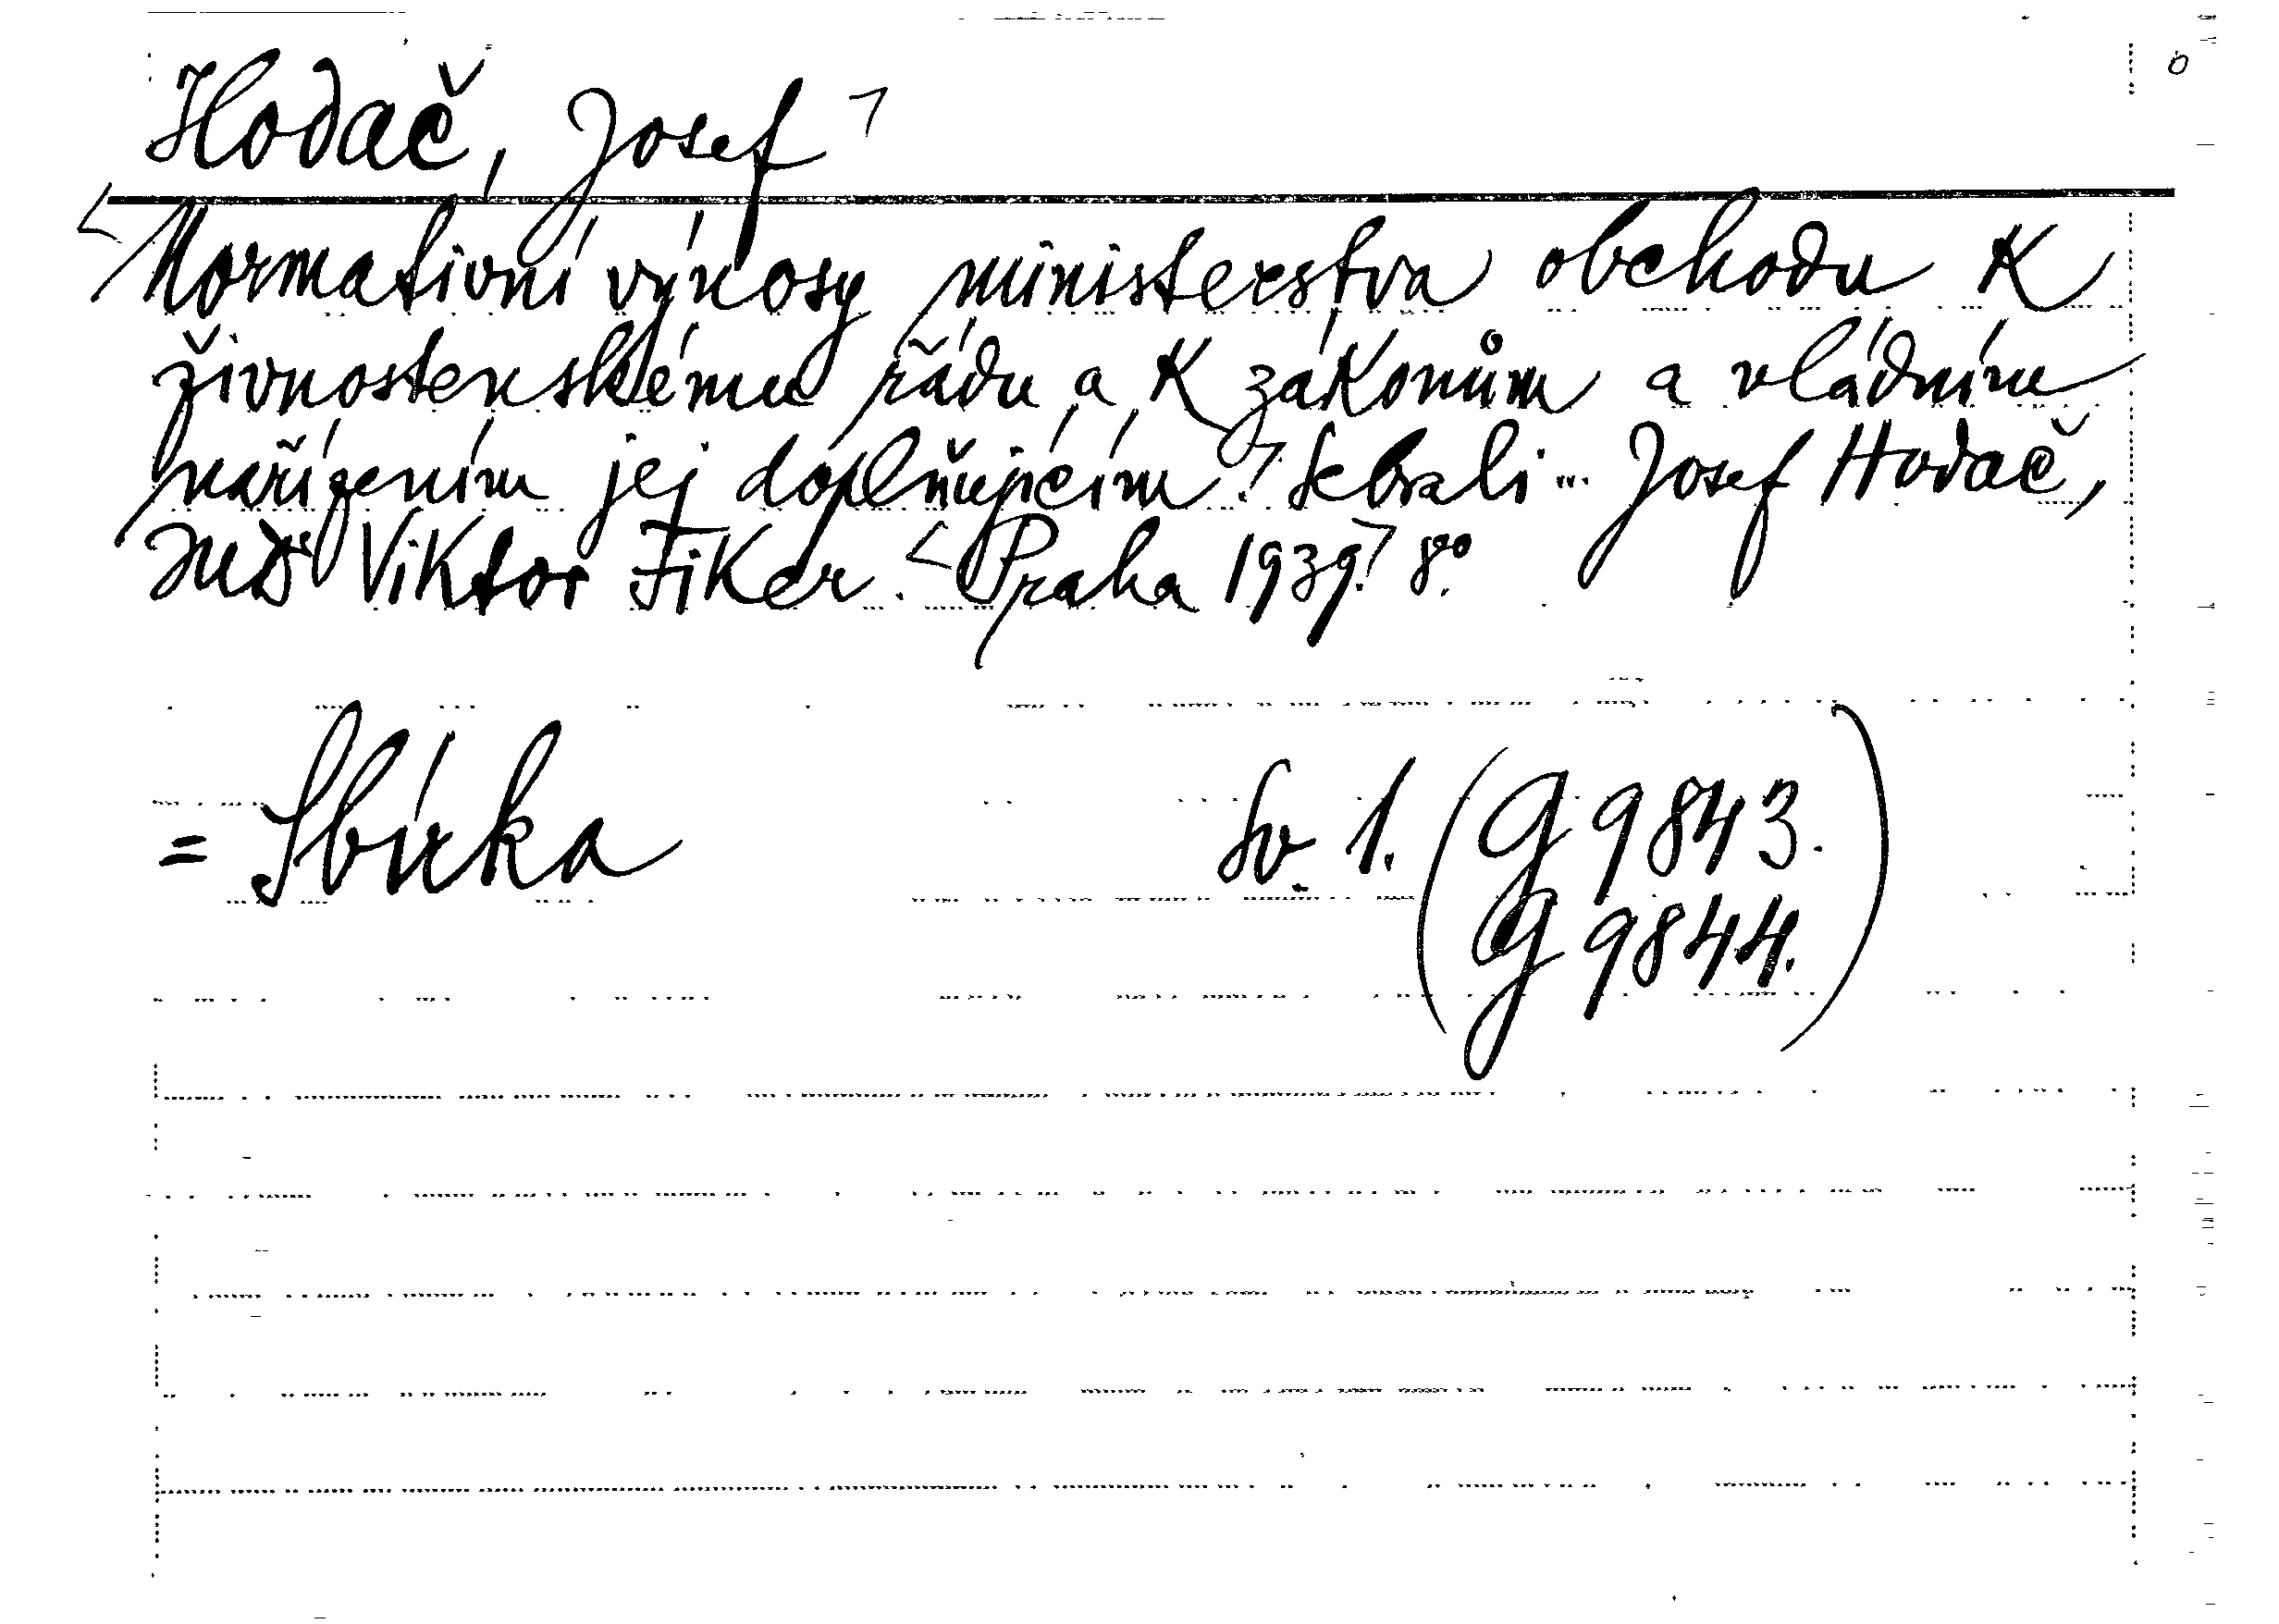 Hodač, Josef
Normativní výnosy ministerstva obchodu k
živnostenskému řádu a k zákonům a vládním
nařízením jej doplňujícím. Sebrali ... Josef Hodač,
JUDr Viktor Fiker. Praha 1939. 8°.
= Sbírka Sv. 1. (G 9843.
G 9844.)